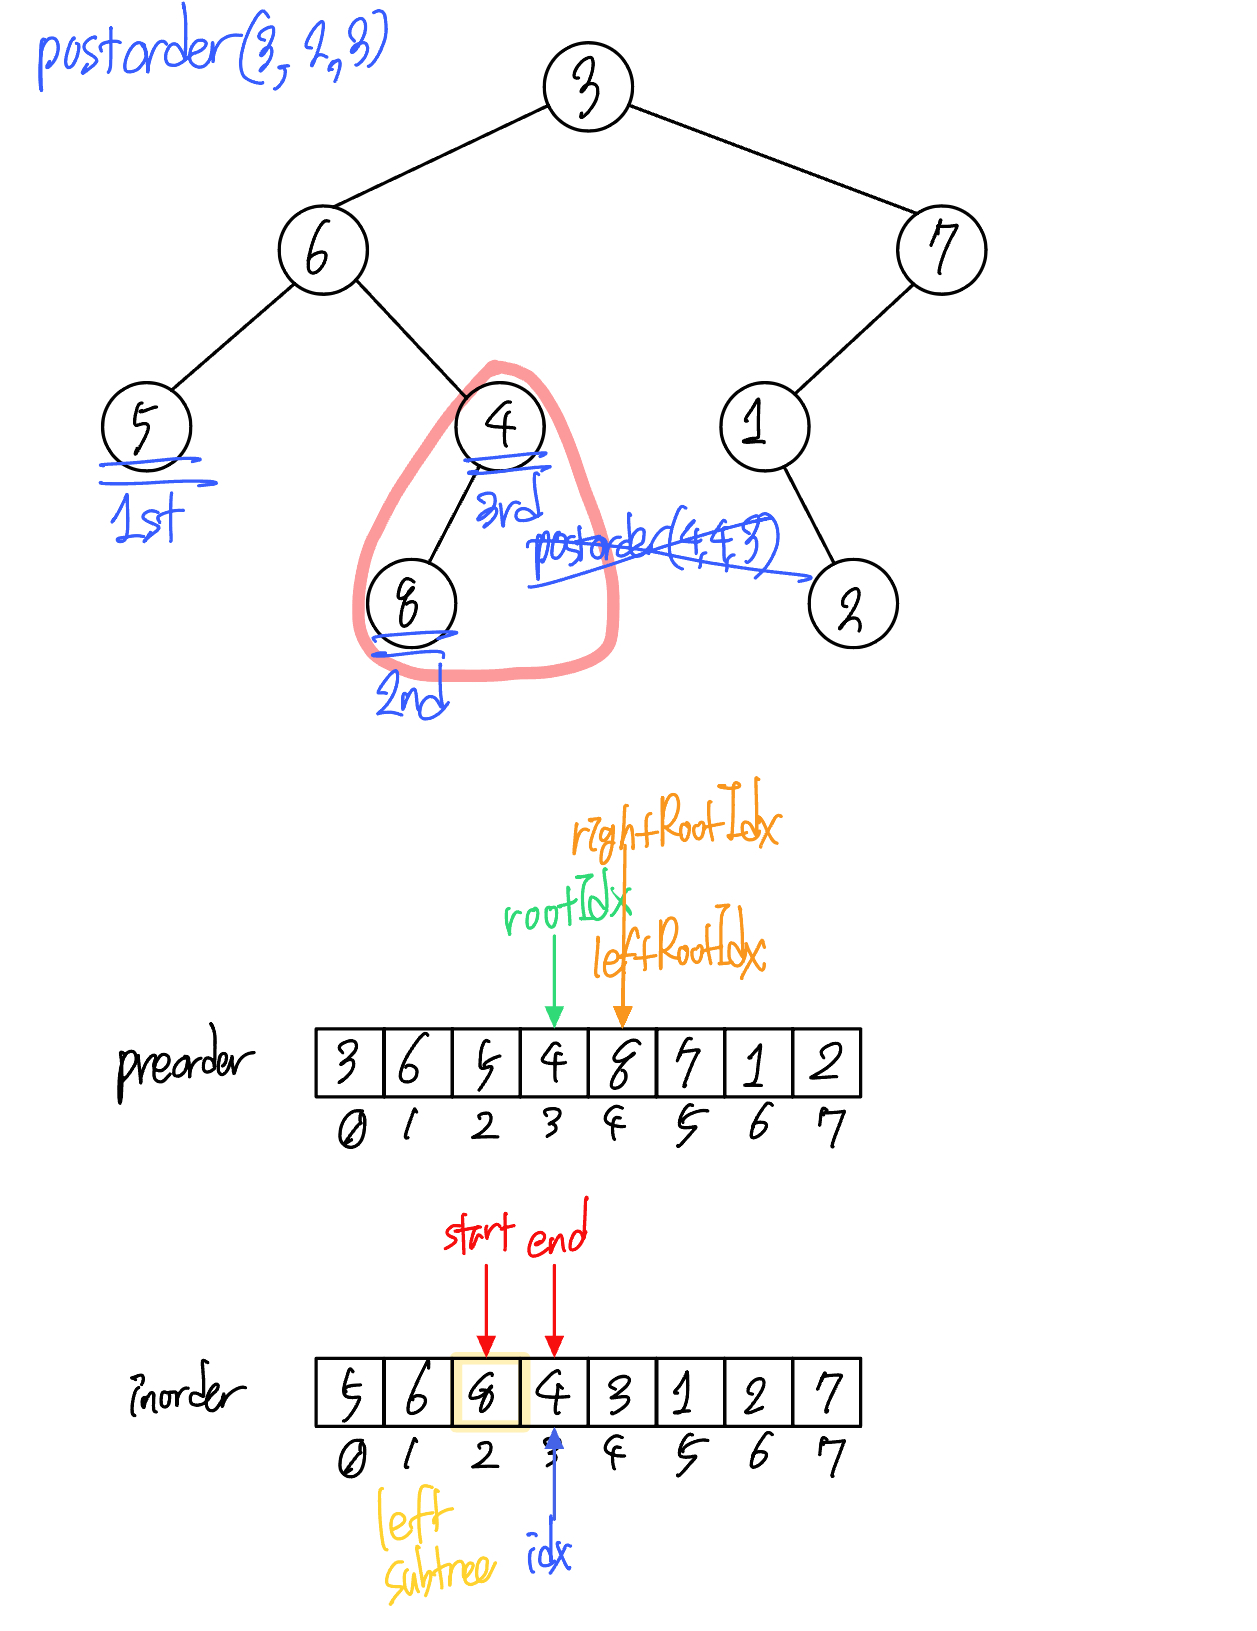 postorder(3, 2, 3)
3
6
7
5
4
1
1st
3rd
postorder(4,4,3)
8
2
2nd
rightRootIdx
rootIdx
leftRootIdx
preorder 3 6 5 4 8 7 1 2
0 1 2 3 4 5 6 7
start end
inorder 5 6 8 4 3 1 2 7
0 1 2 3 4 5 6 7
left
subtree
idx